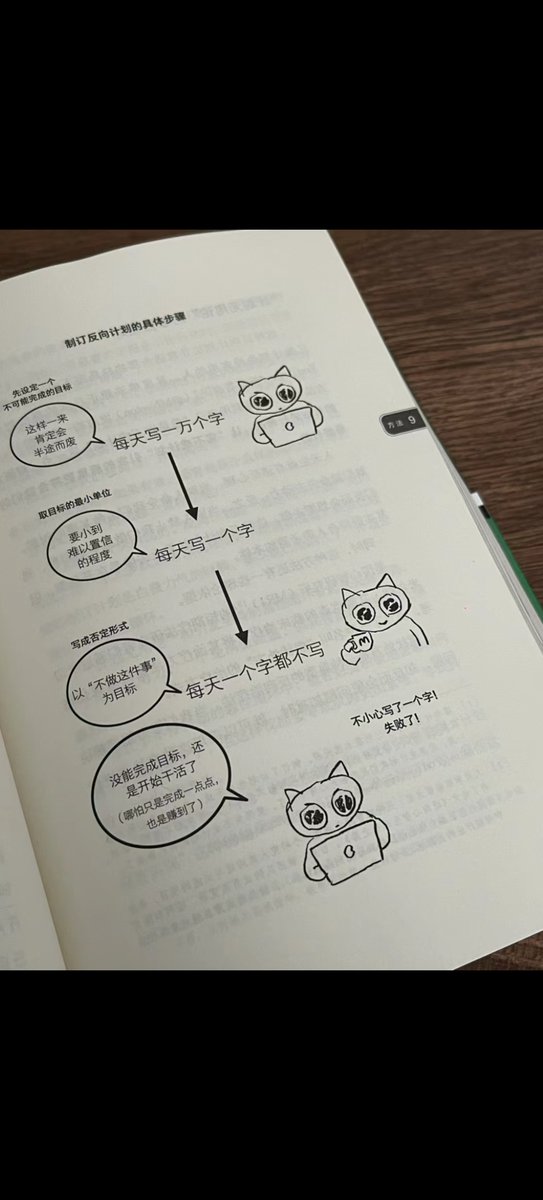 制订反向计划的具体步骤
先设定一个
不可能完成的目标
这样一来
肯定会
半途而废
每天写一万个字
方法 9
取目标的最小单位
要小到
难以置信
的程度
每天写一个字
写成否定形式
以“不做这件事”
为目标
每天一个字都不写
不小心写了一个字！
失败了！
没能完成目标，还
是开始干活了
（哪怕只是完成一点点，
也是赚到了）